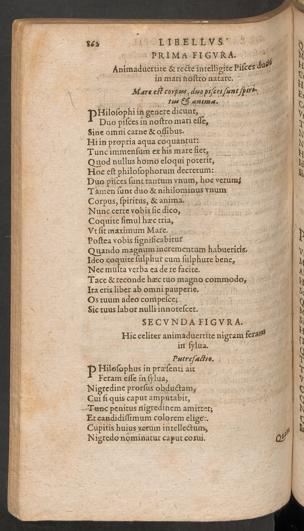 862 LIBELLVS
PRIMA FIGVRA.
Animaduertite & recte intelligite Pisces duos
in mari nostro natare.
Mare est corpus, duo pisces sunt spiri-
tus & anima.
PHilosophi in genere dicunt,
Duo pisces in nostro mari esse,
Sine omni carne & ossibus.
Hi in propria aqua coquantur:
Tunc immensum ex his mare fiet,
Quod nullus homo eloqui poterit,
Hoc est philosophorum decretum:
Duo pisces sunt tantum vnum, hoc verum;
Tamen sunt duo & nihilominus vnum
Corpus, spiritus, & anima.
Nunc certe vobis sic dico,
Coquite simul hæc tria,
Vt sit maximum Mare.
Postea vobis significabitur
Quando magnum incrementum habueritis.
Ideo coquite sulphur cum sulphure bene,
Nec multa verba ea de re facite.
Tace & reconde hæc tuo magno commodo,
Ita eris liber ab omni pauperie.
Os tuum adeo compesce;
Sic tuus labor nulli innotescet.
SECVNDA FIGVRA.
Hic celiter animaduertite nigram feram
in sylua.
Putrefactio.
PHilosophus in præsenti ait
Feram esse in sylua,
Nigredine prorsus obductam,
Cui si quis caput amputabit,
Tunc penitus nigredinem amittet;
Et candidissimum colorem eliget.
Cupitis huius verum intellectum,
Nigredo nominatur caput corui.